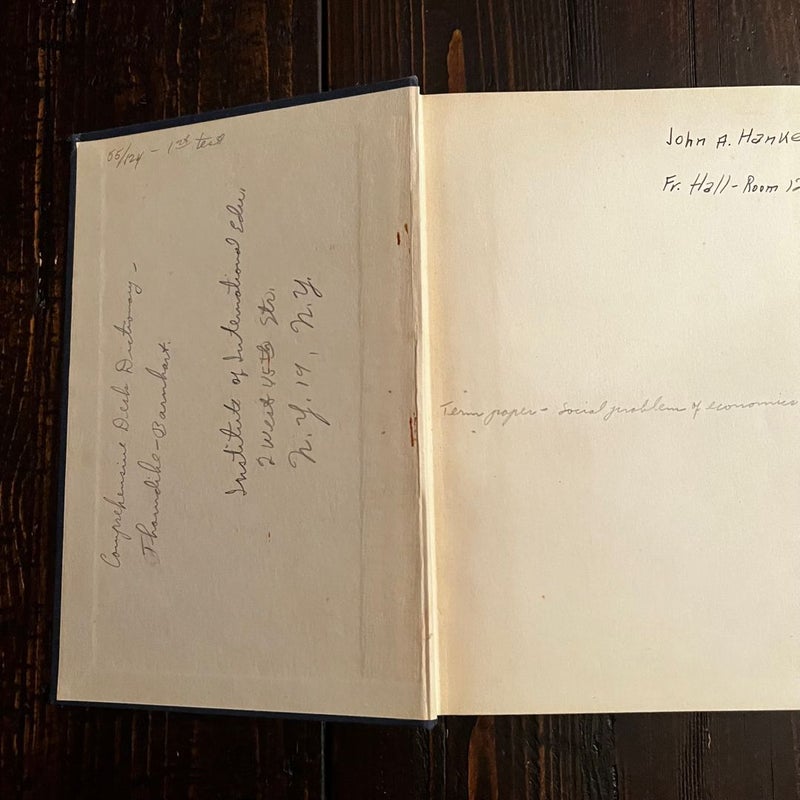 55/124 - 1st test
Comprehensive Desk Dictionary -
Thorndike-Barnhart.
Institute of International Edu.
2 West 45th Str.
N.Y. 19, N.Y.
John A. Hanke
Fr. Hall - Room 12
Term paper - Social problem of economics